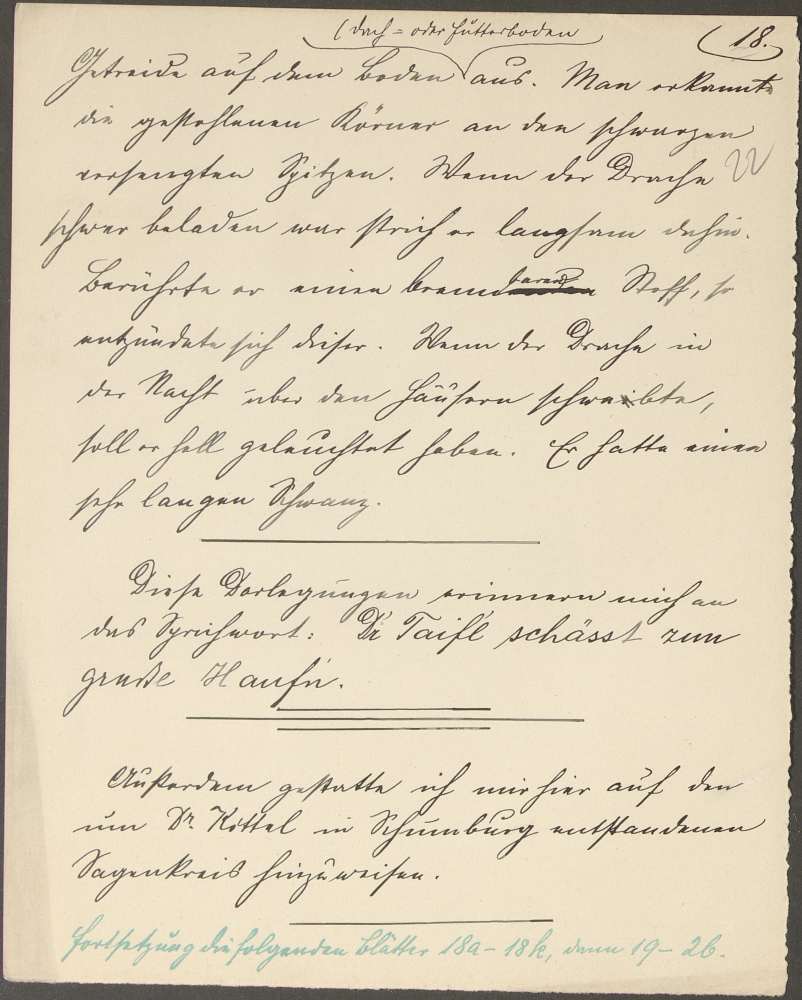 (Dach- oder Futterboden
18.
Getreide auf dem Boden aus. Man erkannte
die gestohlenen Körner an den schwarzen
versengten Spitzen. Wenn der Drache
22
schwer beladen war strich er langsam dahin.
Berührte er einen brennbaren Stoff, so
entzündete sich dieser. Wenn der Drache in
der Nacht über den Häusern schwebte,
soll er hell geleuchtet haben. Er hatte einen
sehr langen Schwanz.
Diese Darlegungen erinnern mich an
das Sprichwort: Dr Taifl schässt zun
grußte Haufn.
Außerdem gestatte ich mir hier auf den
um Dr. Kittel in Schumburg entstandenen
Sagenkreis hinzuweisen.
Fortsetzung die folgenden Blätter 18a - 18k, dann 19 - 26.